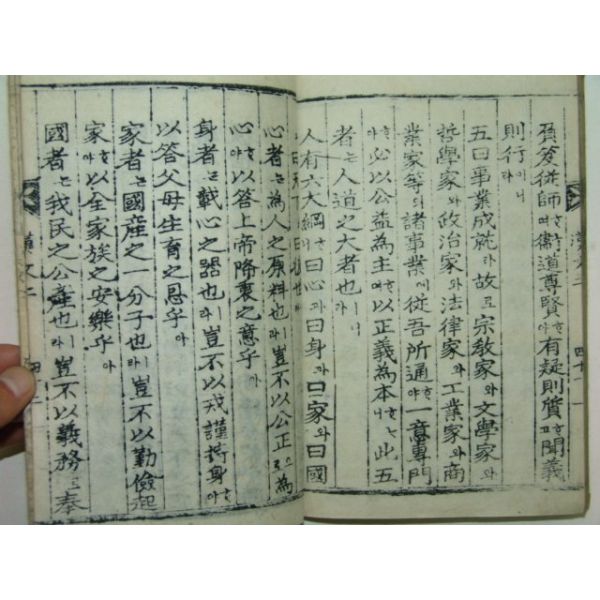 負笈從師ᄒᆞ여衛道尊賢ᄒᆞ야有疑則質ᄒᆞ고聞義
則行이니
五曰事業成就라故로宗敎家와文學家와
哲學家와政治家와法律家와工業家와商
業家等의諸事業에從吾所適ᄒᆞ야一意專門
ᄒᆞ야必以公益爲主ᄒᆞ여以正義爲本ᄒᆞ나니此五
者ᄂᆞᆫ人道之大者也라니
人有六大綱ᄒᆞ니曰心과曰身과曰家와曰國
心者ᄂᆞᆫ爲人之原料也라니豈不以公正으로爲
心ᄒᆞ야以答上帝降衷之意乎아
身者ᄂᆞᆫ載心之器也라니豈不以戒謹持身ᄒᆞ야
以答父母生育之恩乎아
家者ᄂᆞᆫ國産之一分子也라니豈不以勤儉起
家ᄒᆞ야以全家族之安樂乎아
國者ᄂᆞᆫ我民之公産也라니豈不以義務로奉